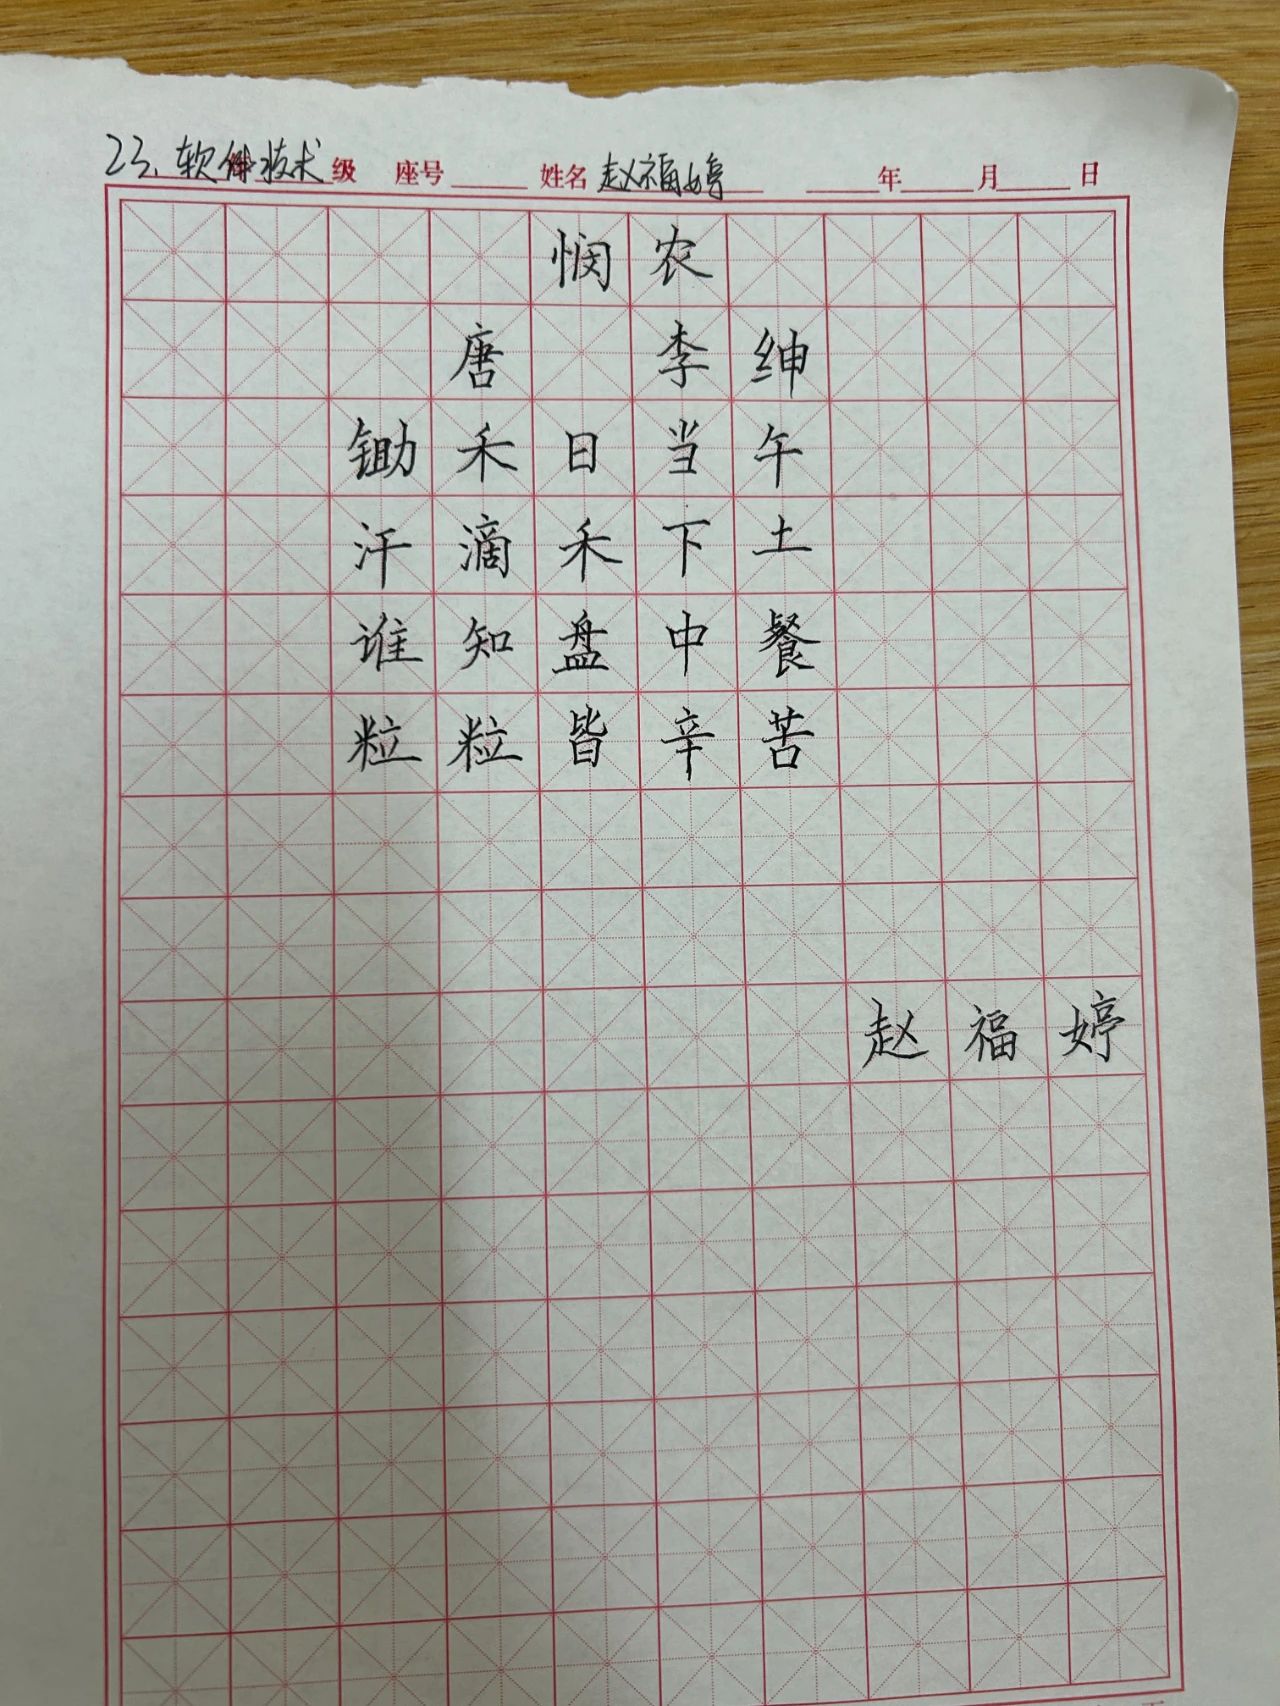 23.软件技术 级 座号 姓名 赵福婷 年 月 日
悯农
唐 李绅
锄禾日当午
汗滴禾下土
谁知盘中餐
粒粒皆辛苦
赵福婷